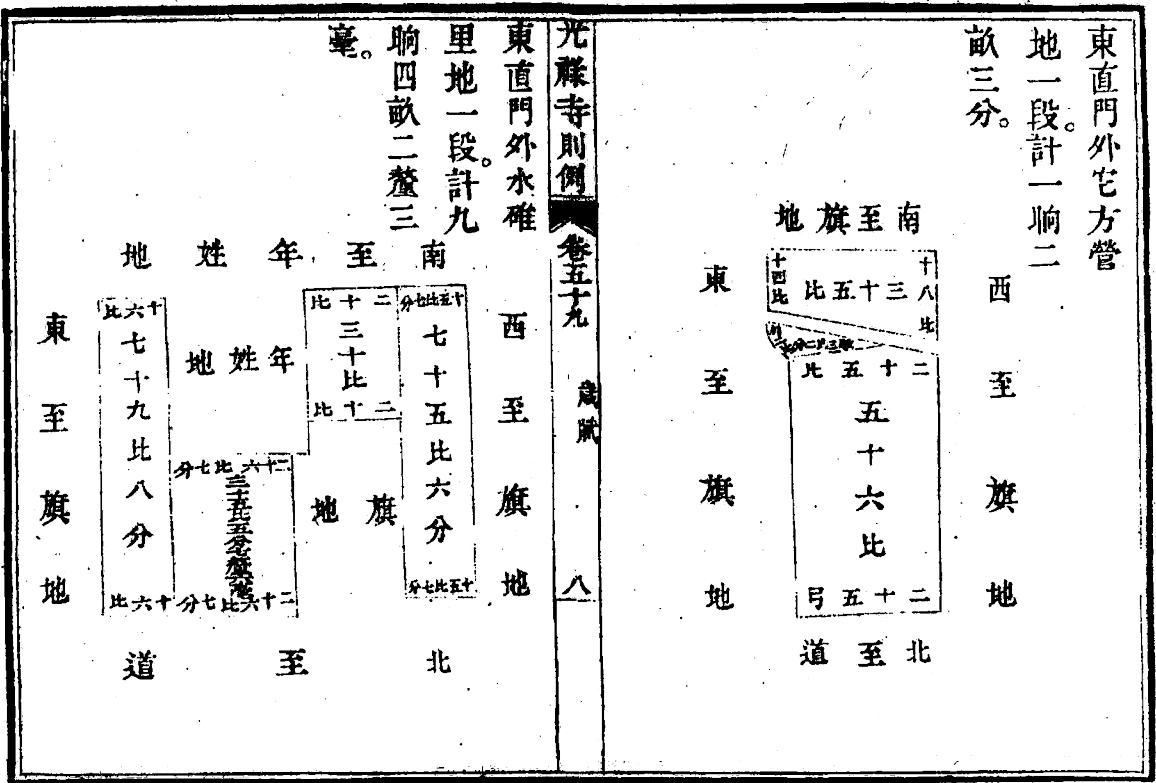 東直門外宅方營
地一段。計一晌二
畝三分。
南至旗地
西至旗地
東至旗地
十八比
三十五比
十四比
二十五比
五十六比
二十五弓
北至道
光祿寺則例
卷五十九
歲賦
八
東直門外水碓
里地一段。計九
晌四畝二釐三
毫。
南至年姓地
西至旗地
東至旗地
十五比七分
七十五比六分
十五比七分
二十比
三十比
二十比
旗地
年姓地
二十六比七分
二十六比七分
十六比
七十九比八分
十六比
北至道